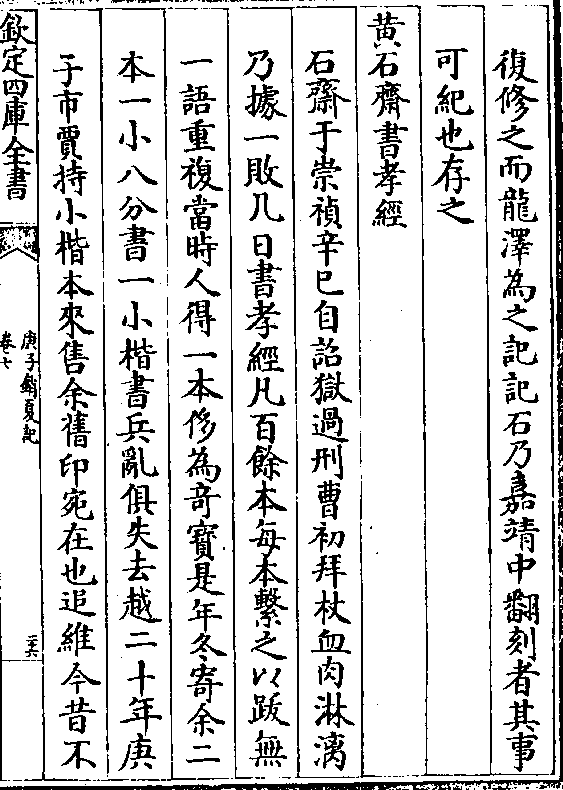 復修之而龍澤為之記記石乃嘉靖中翻刻者其事
可紀也存之
黄石齋書孝經
石齋于崇禎辛巳自詔獄過刑曹初拜杖血肉淋漓
乃據一敗几日書孝經凡百餘本每本繫之以跋無
一語重複當時人得一本侈為竒寳是年冬寄余二
本一小八分書一小楷書兵亂俱失去越二十年庚
子市賈持小楷本來售余舊印宛在也追維今昔不
欽定四庫全書
庚子銷夏記
卷七
二六